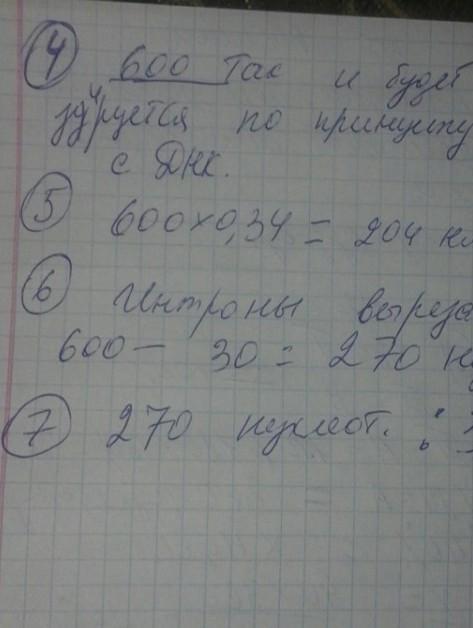 ④ 600 Так и будет
зируется по принципу
с ДНК.
⑤ 600×0,34 = 204 н
⑥ Интроны выреза
600 — 30 = 270 н
⑦ 270 нуклеот. :